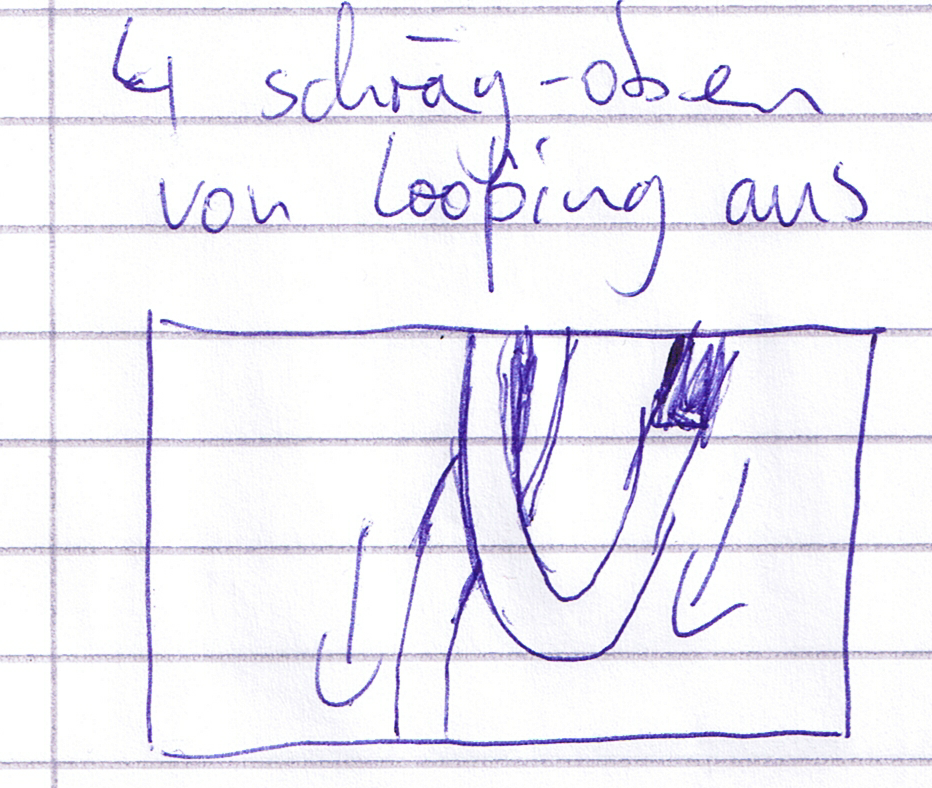 ↳ schräg-oben
von Looping aus